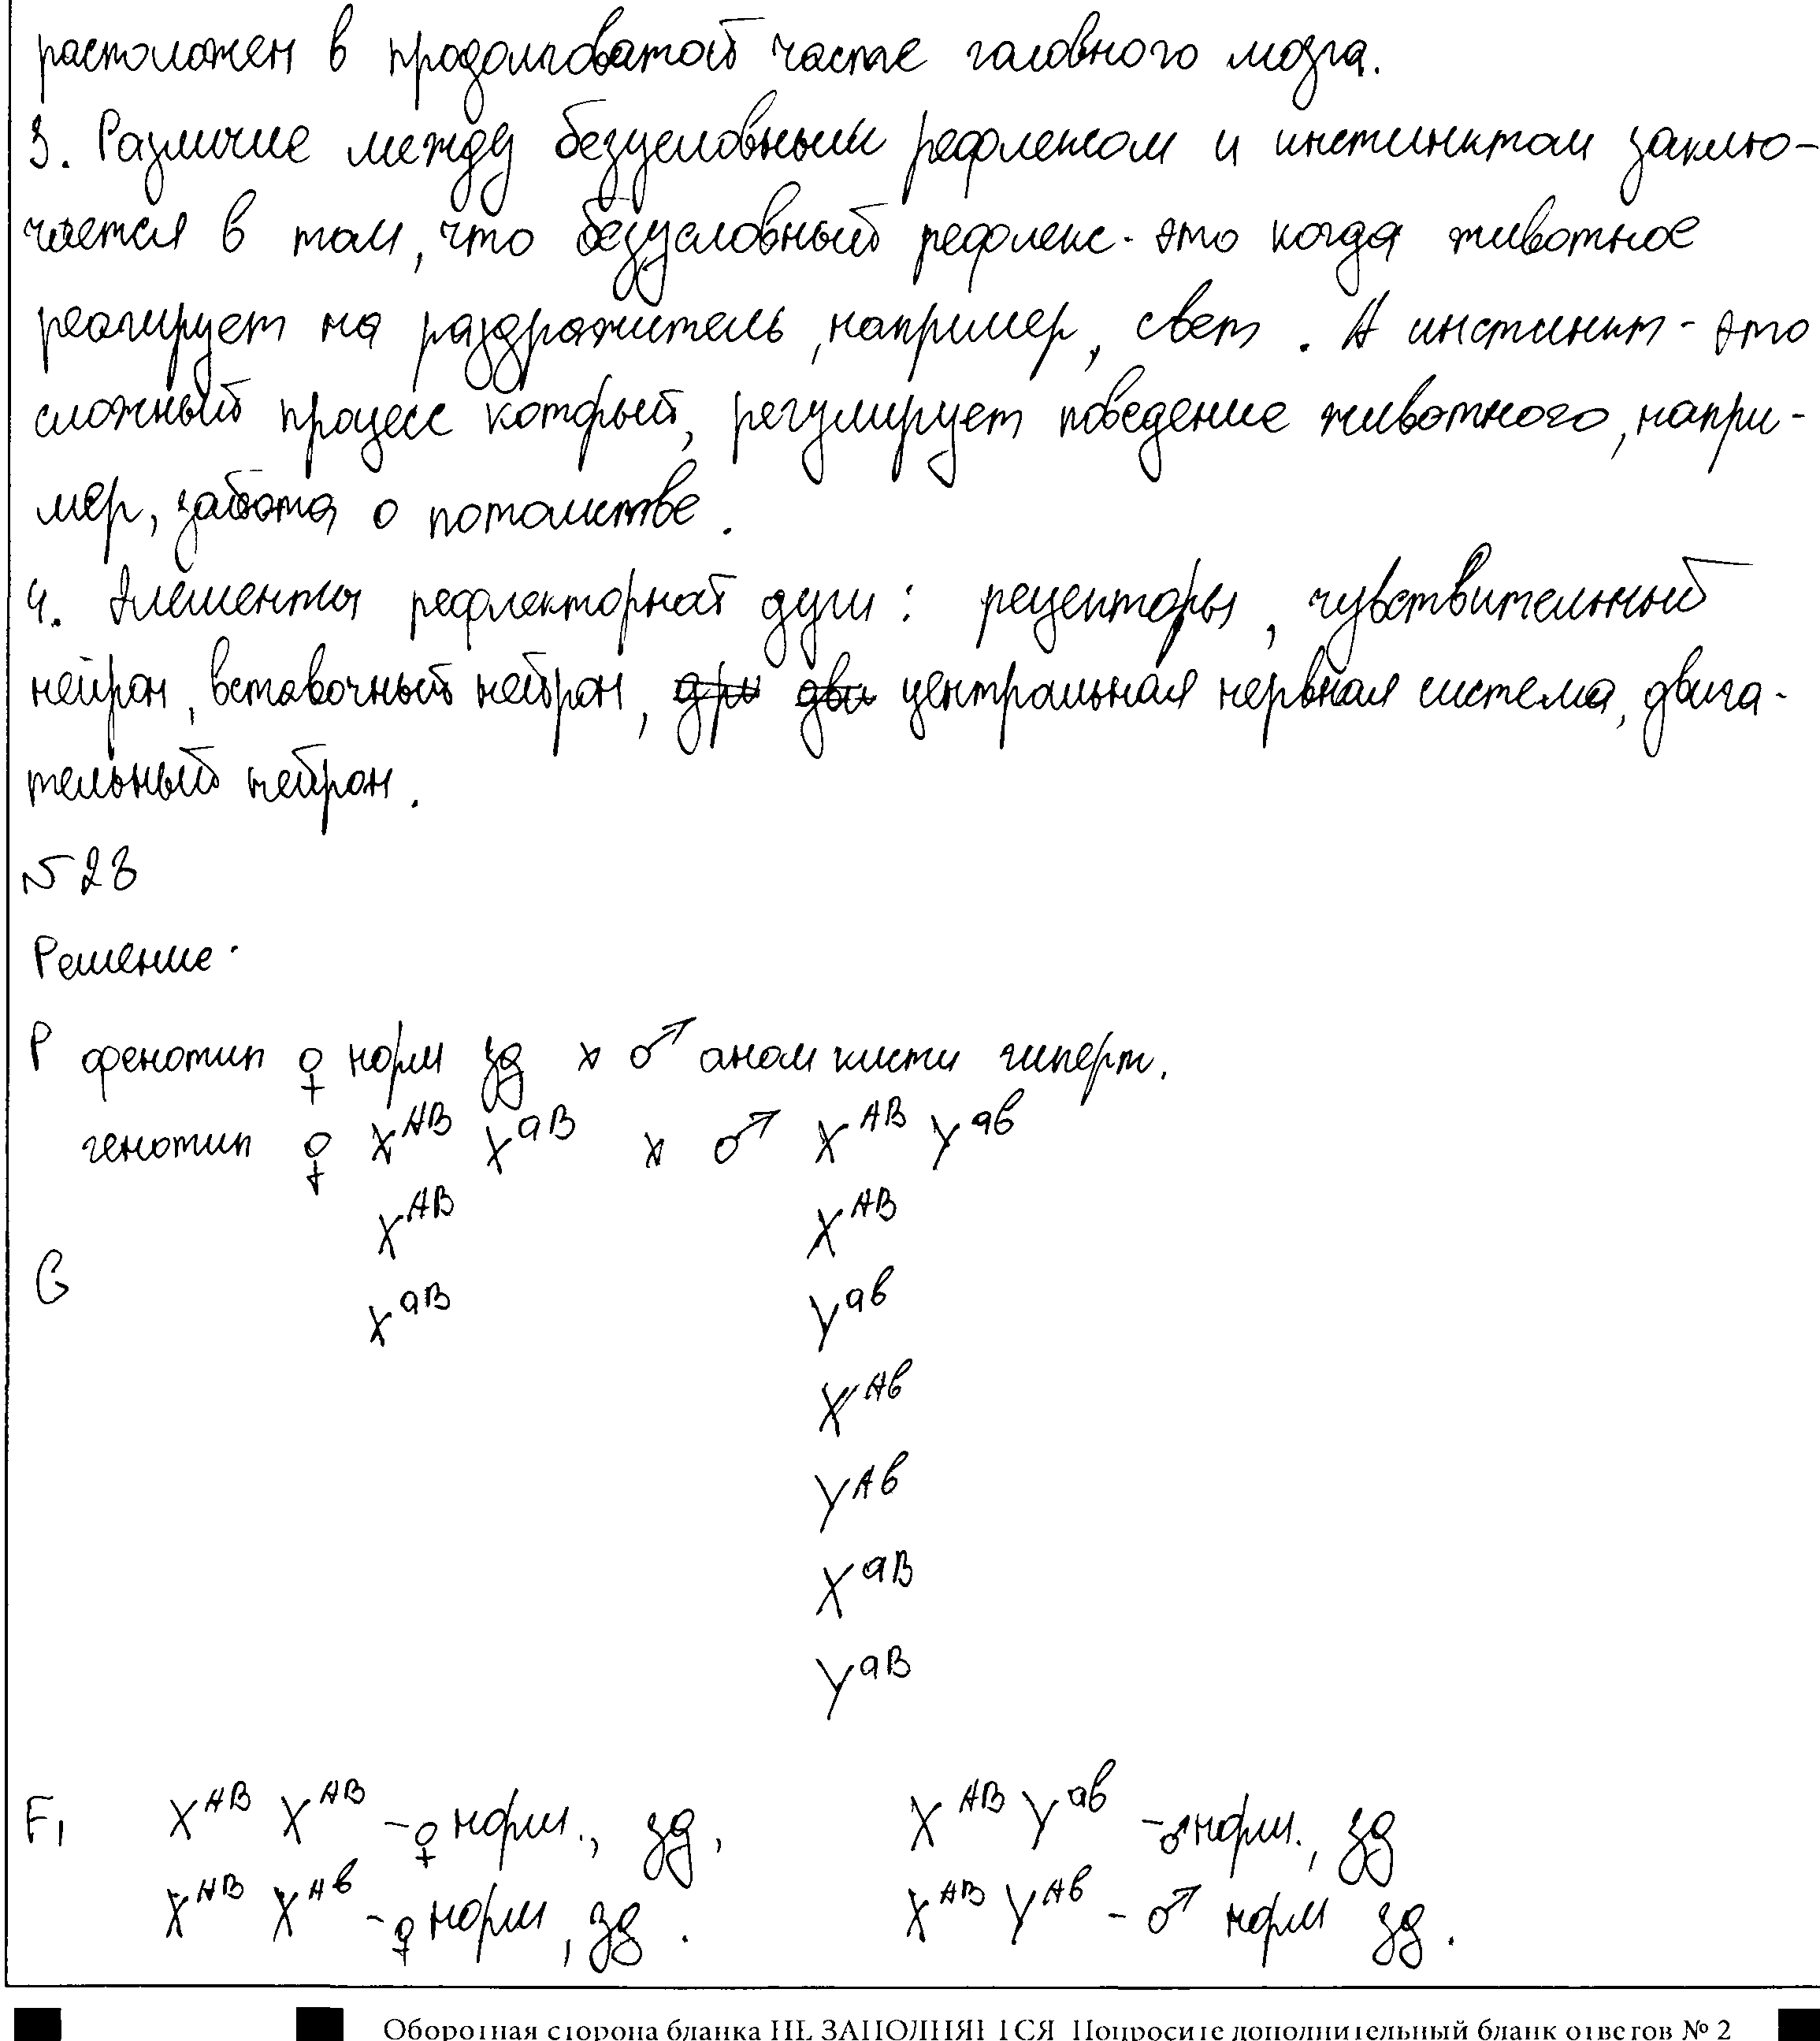 расположен в продолговатой часте головного мозга.
3. Различие между безусловным рефлексом и инстинктом заклю-
чается в том, что безусловный рефлекс - это когда животное
реагирует на раздражитель, например, свет. А инстинкт - это
сложный процесс который, регулирует поведение животного, напри-
мер, забота о потомстве.
4. Элементы рефлекторной дуги: рецепторы, чувствительный
нейрон, вставочный нейрон, дри дви центральная нервная система, двига-
тельный нейрон.
№ 28
Решение:
P фенотип ♀ норм зд x ♂ аном кисти гиперт.
генотип ♀ X^AB X^aB x ♂ X^AB Y^ab
X^AB X^AB
G
X^aB Y^ab
X^Ab
Y^Ab
X^aB
Y^aB
F1 X^AB X^AB - ♀ норм., зд, X^AB Y^ab - ♂ норм., зд
X^AB X^Ab - ♀ норм, зд. X^AB Y^Ab - ♂ норм зд.
Оборотная сторона бланка НЕ ЗАПОЛНЯЕТСЯ Попросите дополнительный бланк ответов № 2